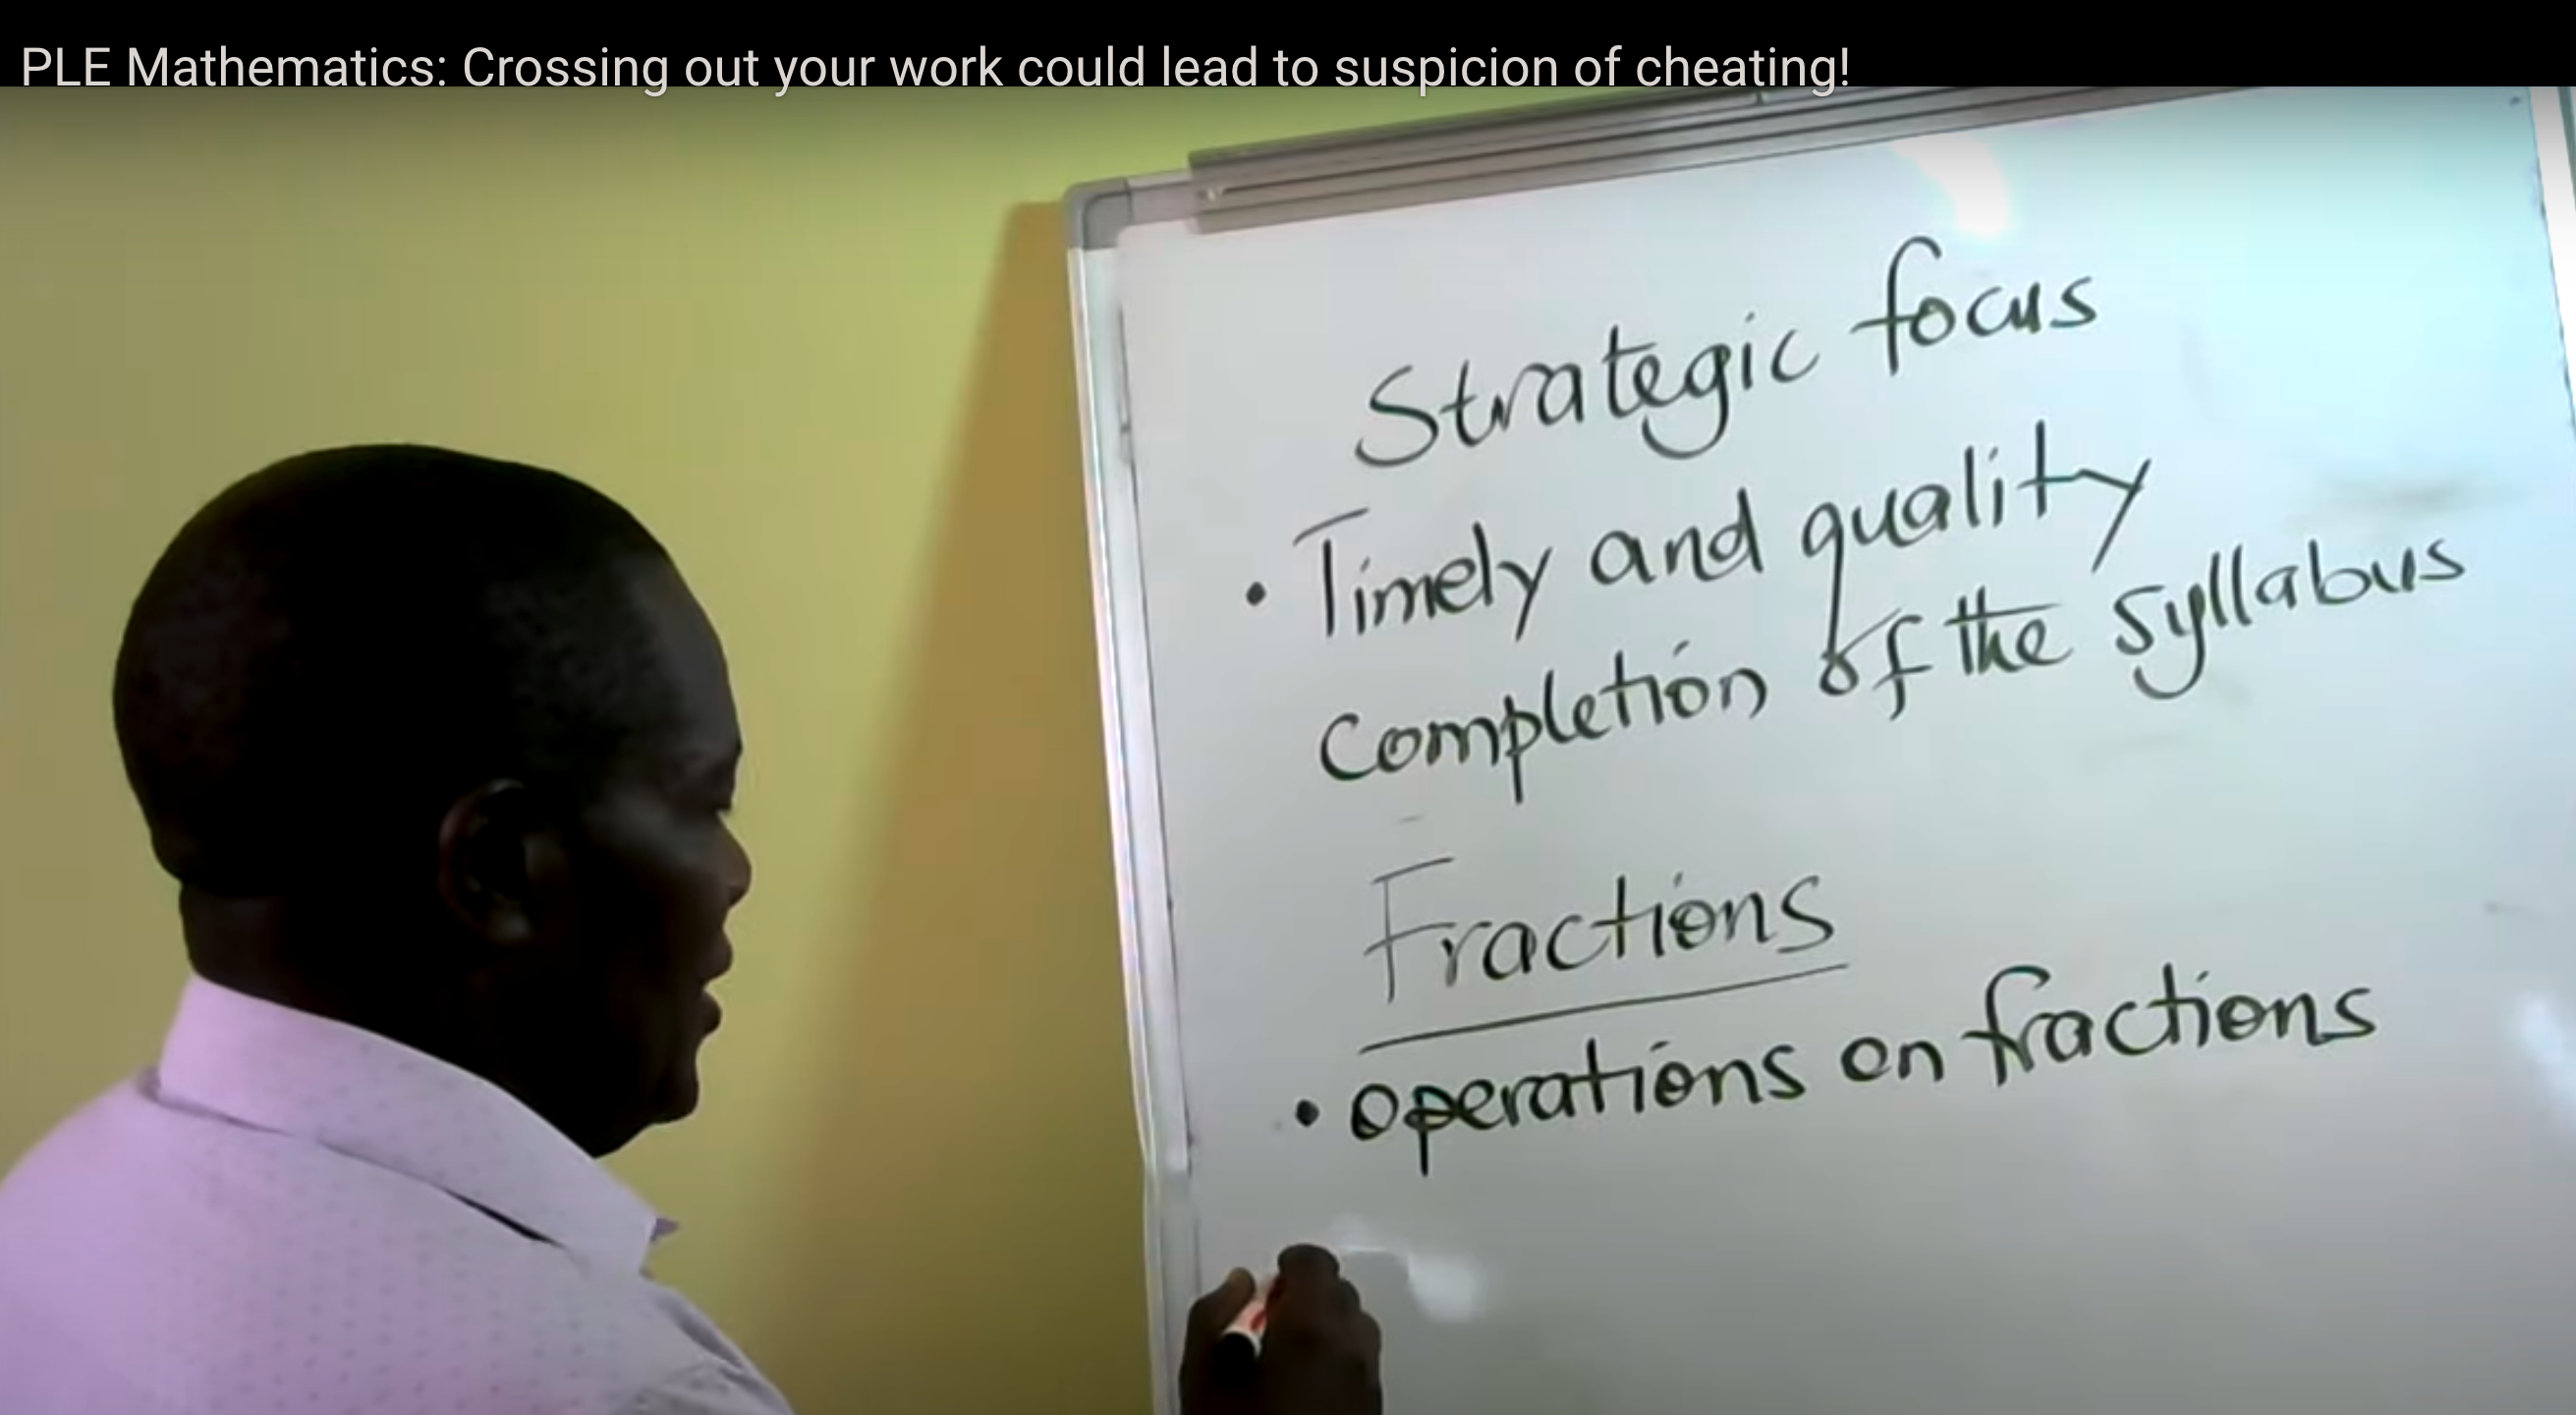 PLE Mathematics: Crossing out your work could lead to suspicion of cheating!
Strategic focus
• Timely and quality
Completion of the syllabus
Fractions
• operations on fractions